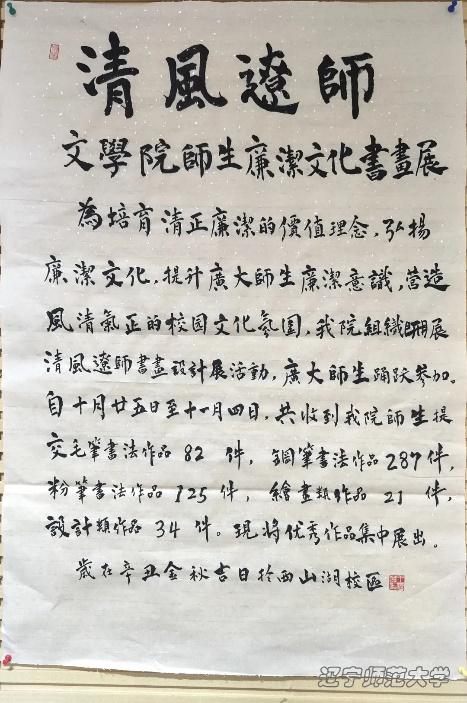 清風遼師
文學院師生廉潔文化書畫展
為培育清正廉潔的價值理念，弘揚
廉潔文化，提升廣大師生廉潔意識，營造
風清氣正的校园文化氛围，我院組織開展
清風遼師書畫設計展活动，廣大師生踊跃參加。
自十月廿五日至十一月四日，共收到我院師生提
交毛筆書法作品82件，鋼筆書法作品287件，
粉筆書法作品125件，繪畫類作品21件，
設計類作品34件。現将优秀作品集中展出。
歲在辛丑金秋吉日於西山湖校區
辽宁师范大学